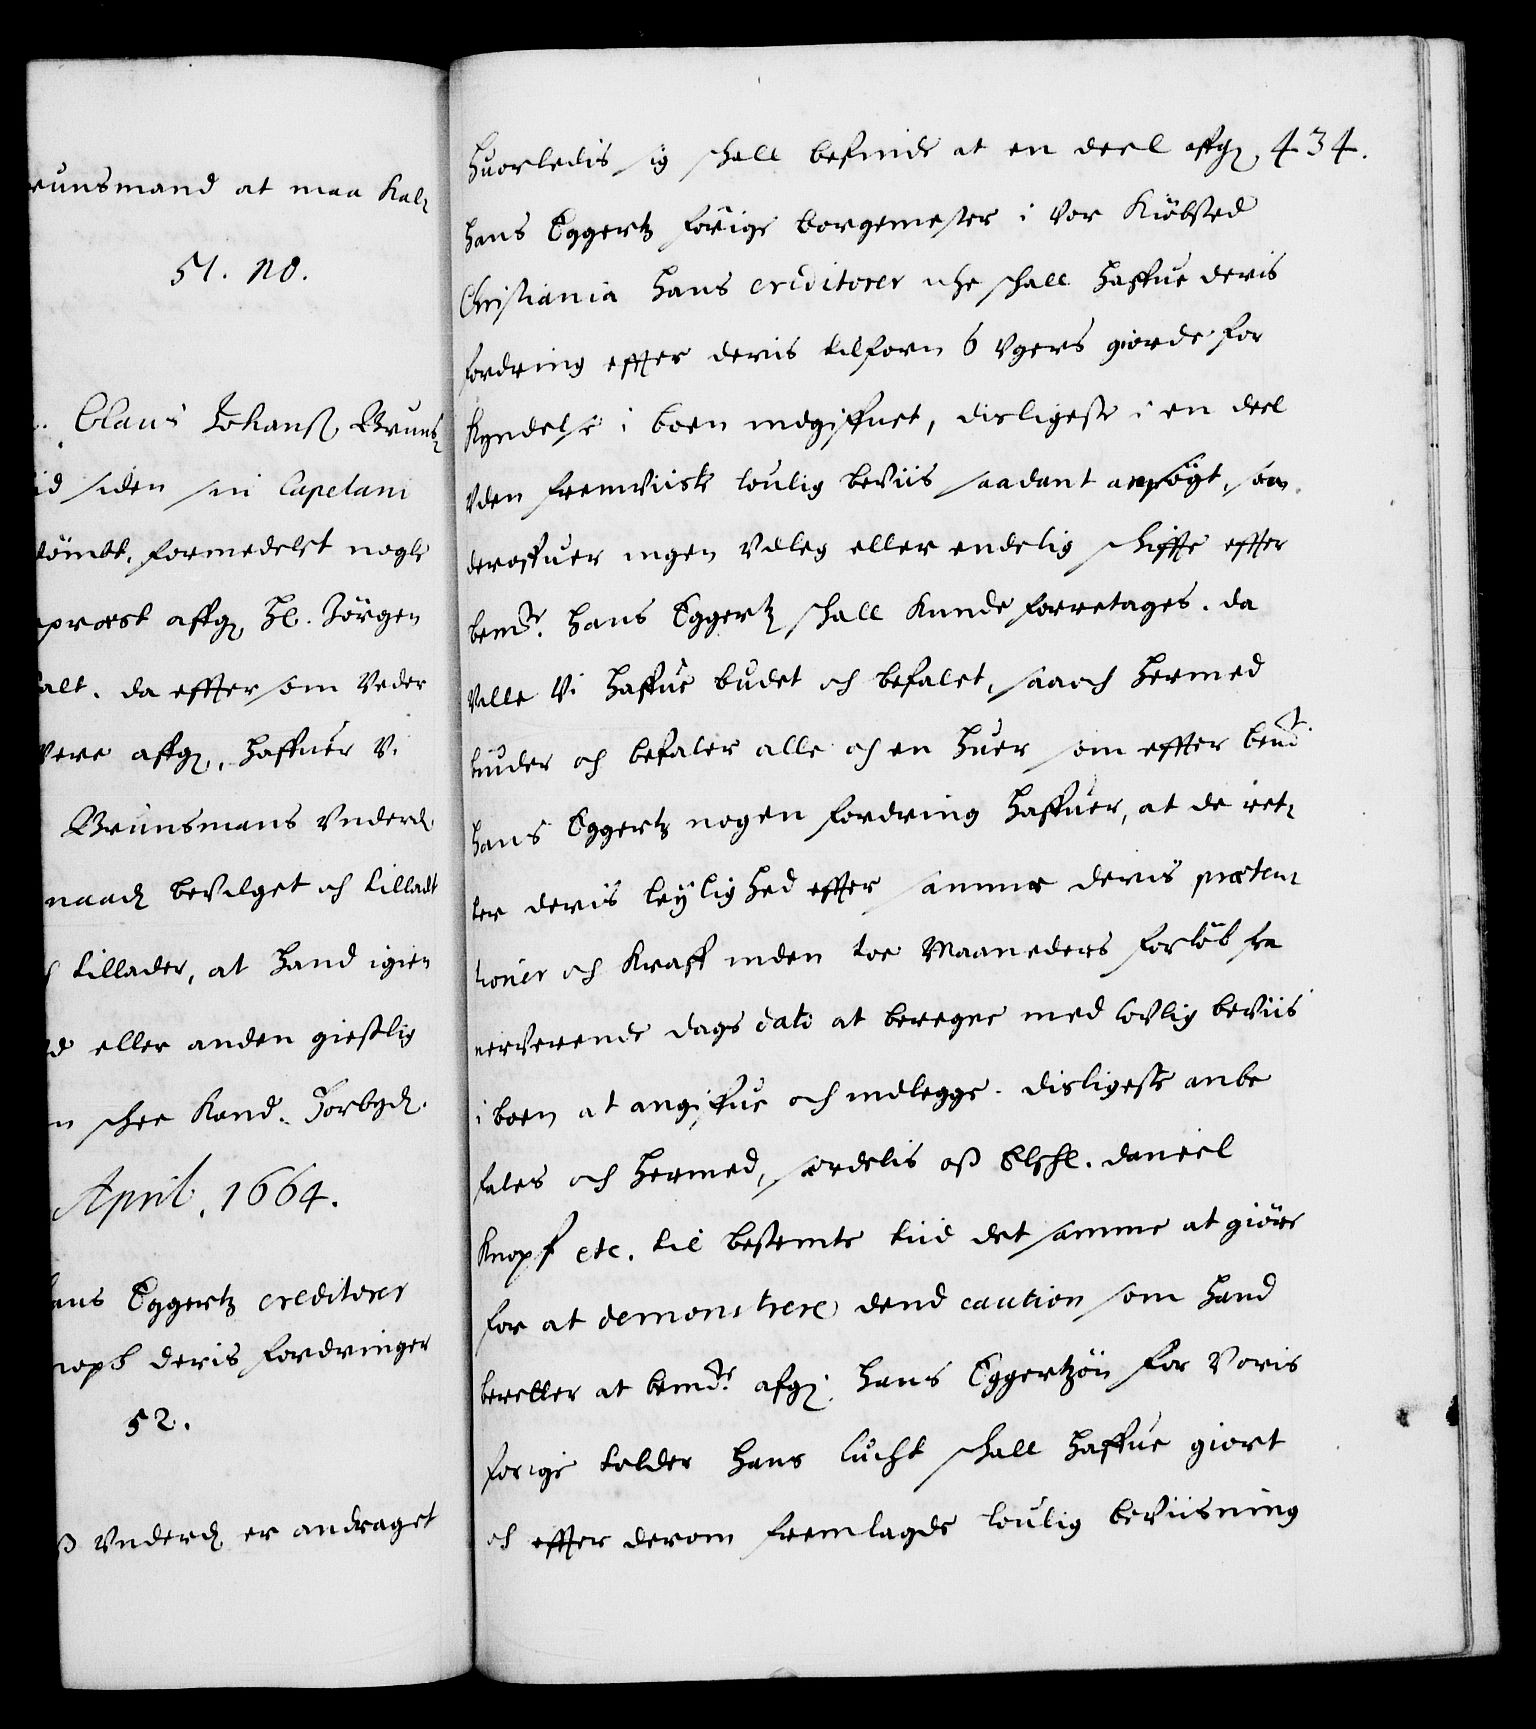 runsmand at maa kal
51. N8.
Claus Johanß Bruns
id siden sin Capelani
dömbt, formedelst nogle
præst affg. Hl. Jörgen
alt. da effter som Veder
Vere affg., haffuer Vi
Brunsmans Vnderd.
naad bevilget och tilladt
tillader, at hand igien
eller anden giestlig
n schee kand. Forbyd.
April. 1664.
ans Eggertz creditorer
nopf deris fordringer
52.
ß Vnderd. er andraget
434.
huorledis sig schall befinde at en deel affg.
Hans Eggertz forige borgemester i Vor Kiöbsted
Christiania hans creditorer iche schall haffue deris
fordring effter deris tilforn 6 Vgers giorde for
kyndelse i boen indgiffuet, disligeste i en deel
Vden fremviiste loulig beviis saadant ansögt, saa
deroffuer ingen Vdleg eller endelig schiffte effter
bemte. Hans Eggertz schall kunde forretages. da
Ville Vi haffue budet och befalet, saa och hermed
biuder och befaler alle och en huer som effter bemt.
Hans Eggertz nogen fordring haffuer, at de ret
ter deris leylighed effter samme deris præten
tioner och kraff inden toe Maaneders forlöb fra
nerverende dags dato at beregne med lovlig beviis
i boen at angiffue och indlegge. disligeste anbe
fales och hermed, serdelis oß Elschl. Daniel
Knopf etc. til bestemte tiid det samme at giöre
for at demonstrere dend caution som hand
beretter at bemte. afg. Hans Eggertzön for Voris
forige tolder Hans Lucht schall haffue giort
och effter derom fremlagde loulig beviisning